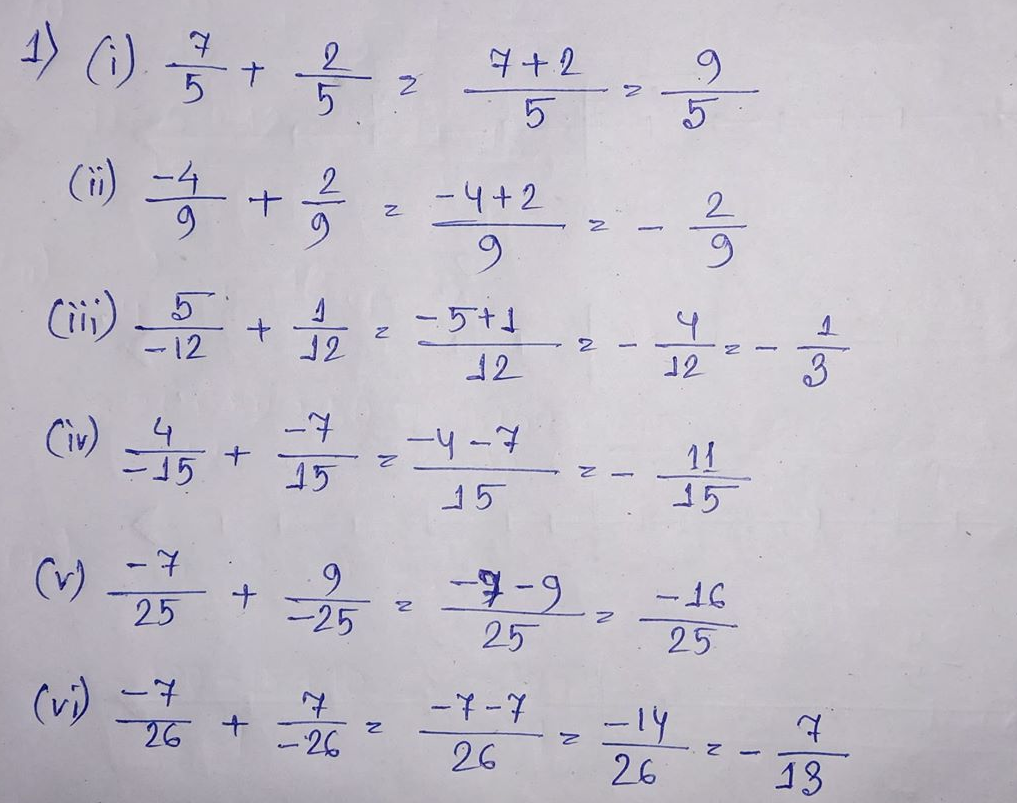 1) (i) 7/5 + 2/5 = (7+2)/5 = 9/5
(ii) -4/9 + 2/9 = (-4+2)/9 = - 2/9
(iii) 5/-12 + 1/12 = (-5+1)/12 = - 4/12 = - 1/3
(iv) 4/-15 + -7/15 = (-4-7)/15 = - 11/15
(v) -7/25 + 9/-25 = (-7-9)/25 = -16/25
(vi) -7/26 + 7/-26 = (-7-7)/26 = -14/26 = - 7/13